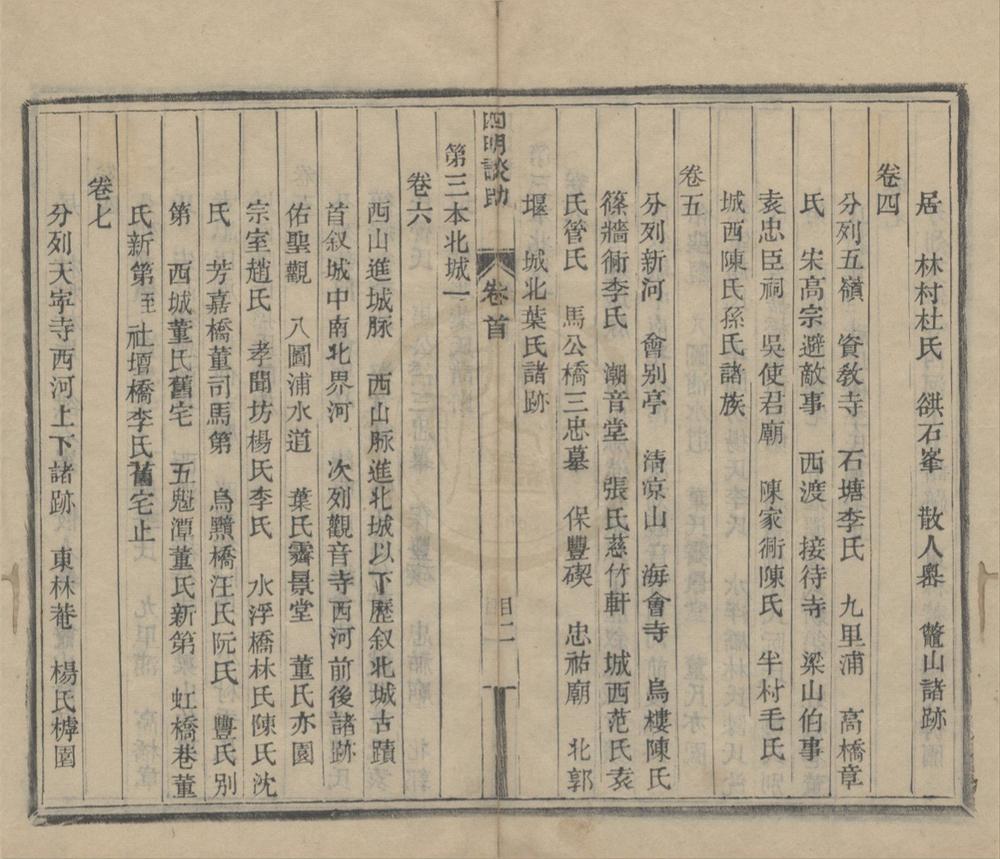 居　林村杜氏　䂬石峯　散人嶴　鼈山諸跡
卷四
分列五嶺　資教寺　石塘李氏　九里浦　高橋章
氏　宋高宗避敵事　西渡　接待寺　梁山伯事
袁忠臣祠　吳使君廟　陳家衕陳氏　半村毛氏
城西陳氏孫氏諸族
卷五
分列新河　會别亭　淸凉山海會寺　烏樓陳氏
篠牆衕李氏　潮音堂　張氏慈竹軒　城西范氏袁
氏管氏　馬公橋三忠墓　保豐碶　忠祐廟　北郭
堰　城北葉氏諸跡
四明談助　卷首　目二
第三本北城一
卷六
西山進城脉　西山脈進北城以下歷叙北城古蹟
首叙城中南北界河　次列觀音寺西河前後諸跡
佑聖觀　八圖浦水道　葉氏霽景堂　董氏亦園
宗室趙氏　孝聞坊楊氏李氏　水浮橋林氏陳氏沈
氏　芳嘉橋董司馬第　烏黷橋汪氏阮氏　豐氏别
第　西城董氏舊宅　五魁潭董氏新第　虹橋巷董
氏新第至　社壇橋李氏舊宅止
卷七
分列天寧寺西河上下諸跡　東林菴　楊氏槹園